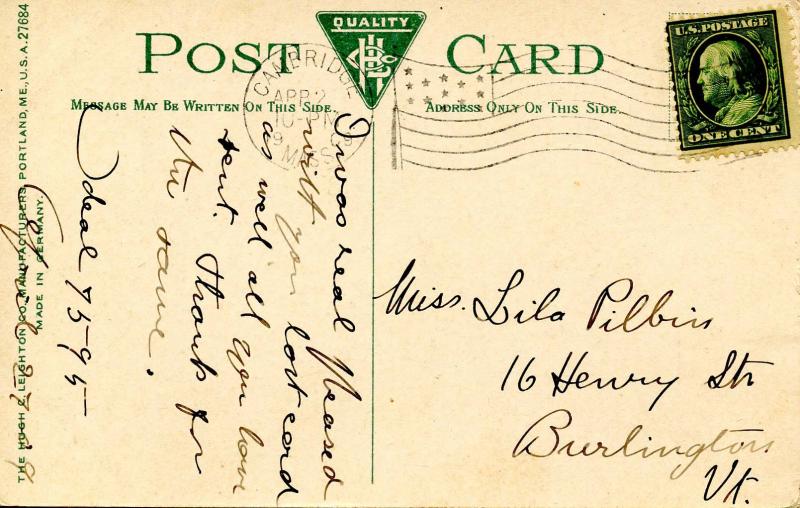 QUALITY
POST CARD
MESSAGE MAY BE WRITTEN ON THIS SIDE.
ADDRESS ONLY ON THIS SIDE.
U.S. POSTAGE
ONE CENT
CAMBRIDGE
APR 2
10-PM
MASS
THE HUGH C. LEIGHTON CO., MANUFACTURERS, PORTLAND, ME., U.S.A. 27684
MADE IN GERMANY.
I was real pleased
with you last card
as well all you have
sent. Thanks for
the same.
Ideal 7595
Miss. Lila Pilbin
16 Henry Str
Burlington
Vt.